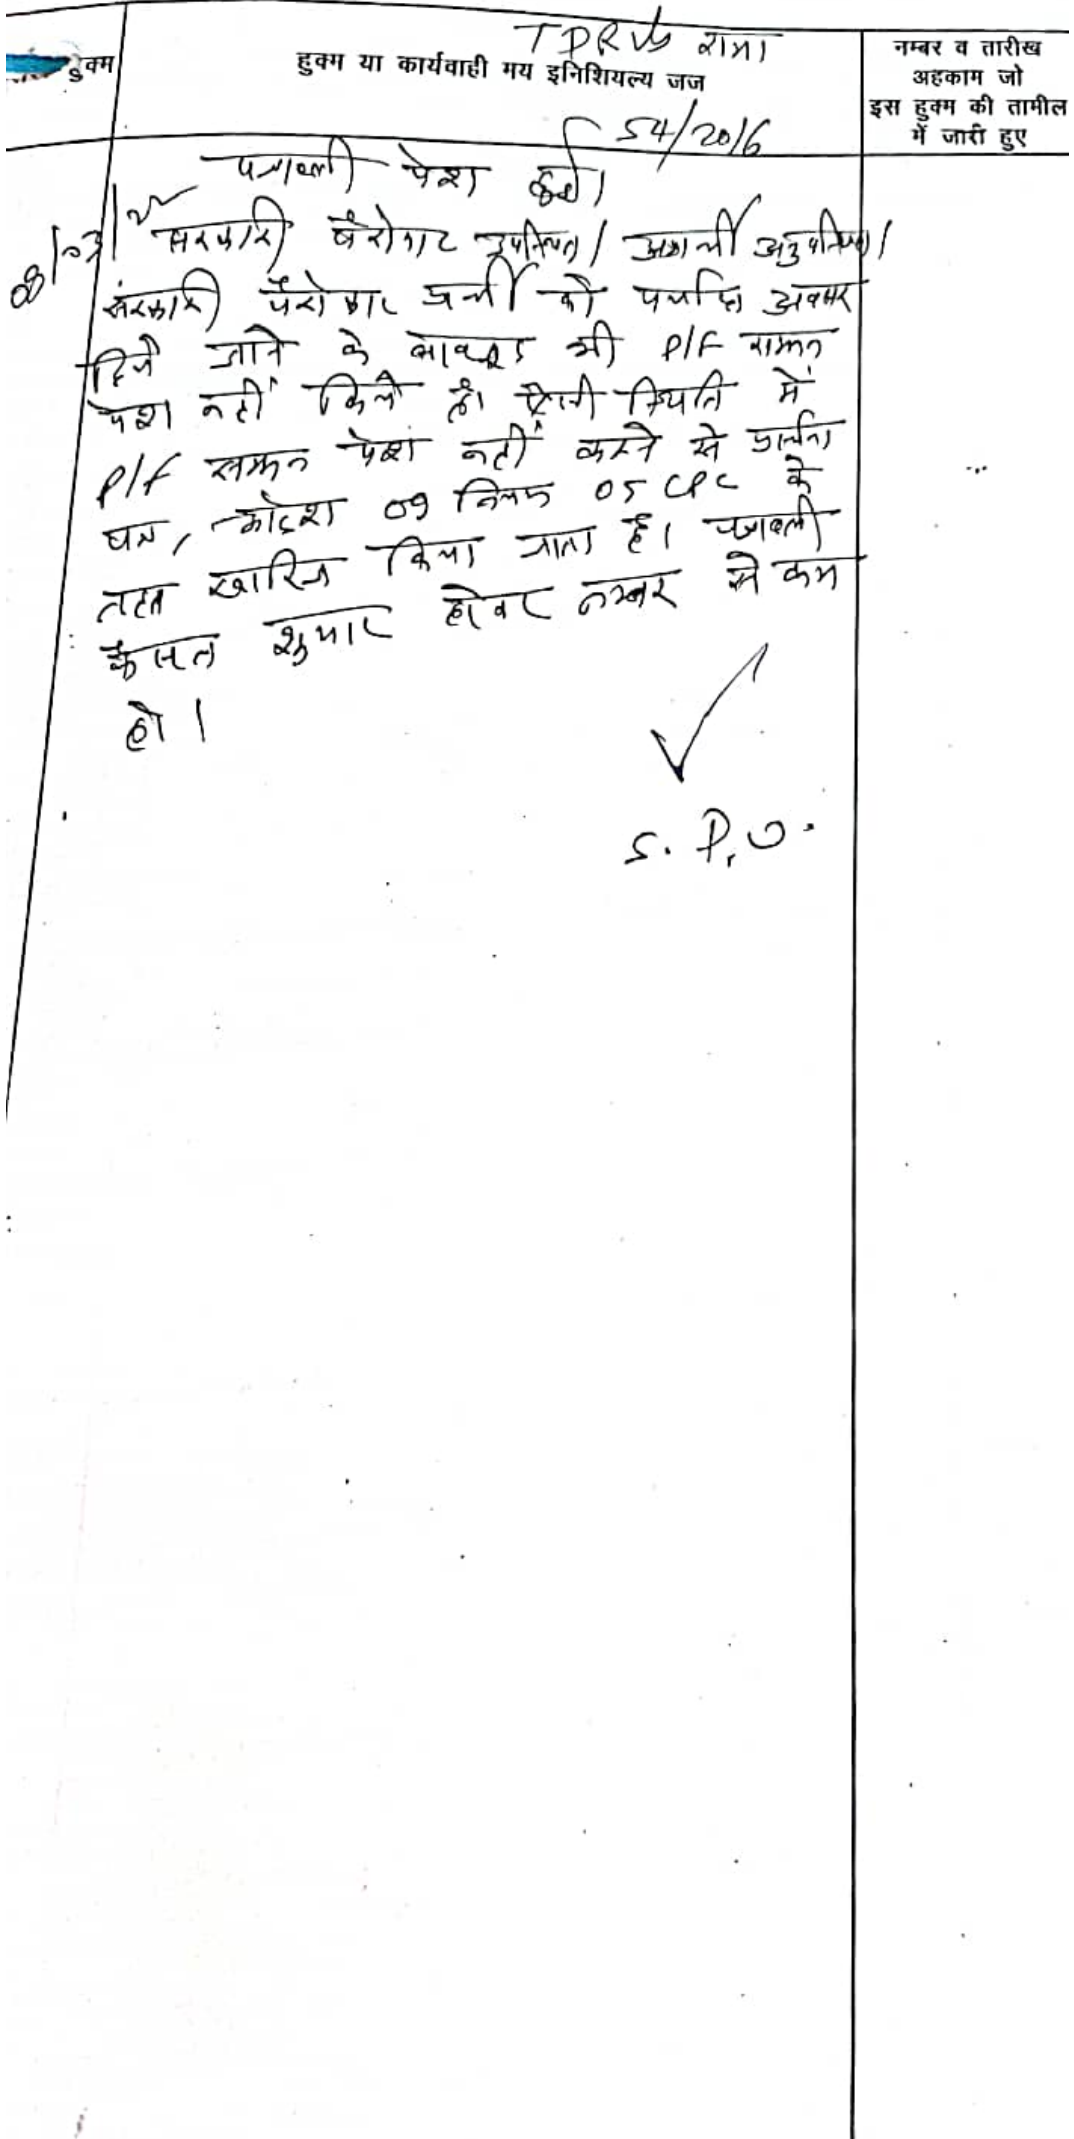 TDR V/S रामा
हुक्म
हुक्म या कार्यवाही मय इनिशियल्य जज
नम्बर व तारीख
अहकाम जो
इस हुक्म की तामील
में जारी हुए
54/2016
पत्रावली पेश हुई।
सरकारी पैरोकार उपस्थित। अप्रार्थी अनुपस्थित।
सरकारी पैरोकार प्रार्थी को पर्याप्त अवसर
दिये जाने के बावजूद भी P/F सम्मन
पेश नहीं किये है। ऐसी स्थिति में
P/F सम्मन पेश नहीं करने से प्रार्थना
पत्र, आदेश 09 नियम 05 CPC के
तहत खारिज किया जाता है। पत्रावली
फैसल शुमार होकर नम्बर से कम
हो।
S. P. O.